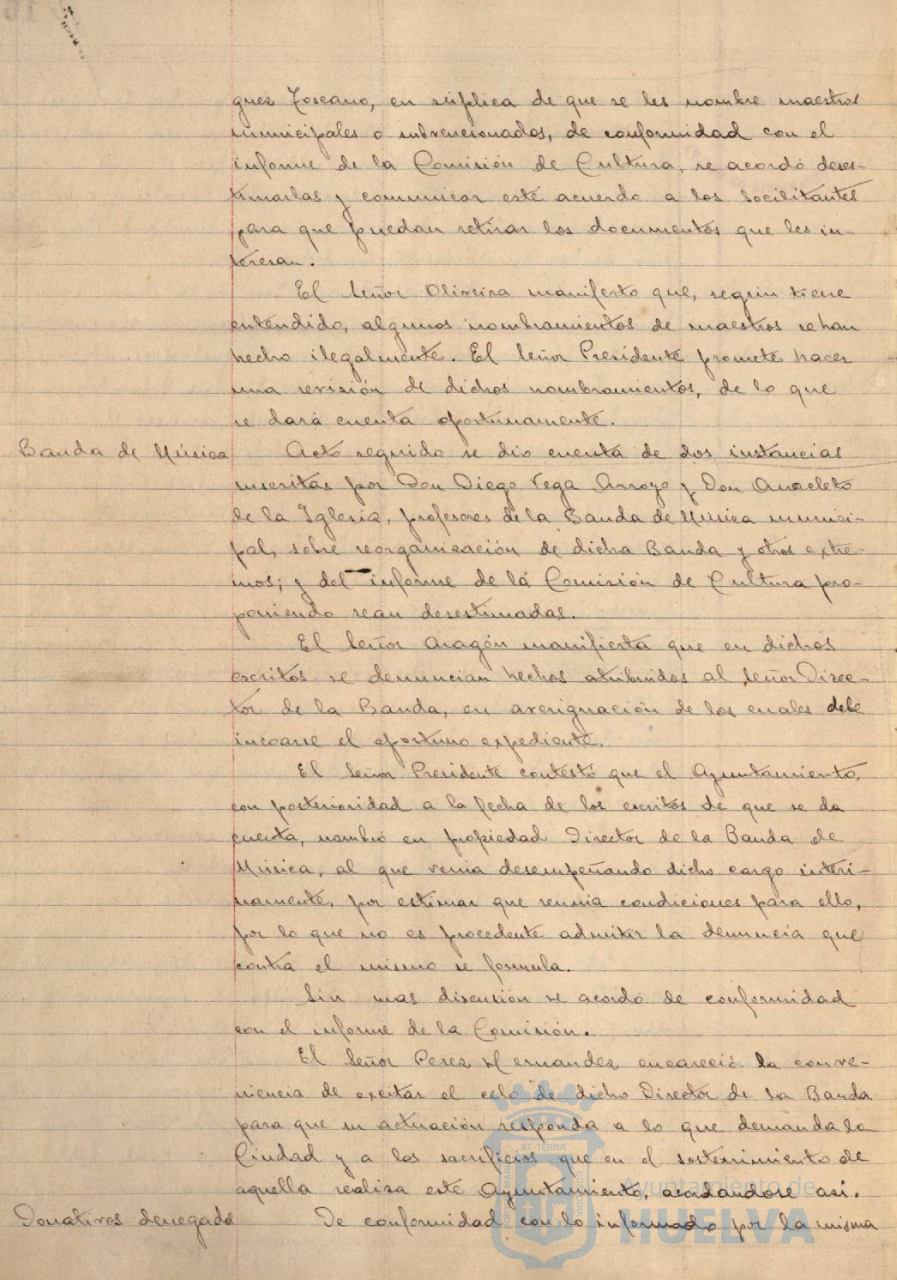 guez Toscano, en súplica de que se les nombre maestros
municipales o subvencionados, de conformidad con el
informe de la Comisión de Cultura, se acordó deses-
timarlas y comunicar este acuerdo a los socilitantes
para que puedan retirar los documentos que les in-
teresan.
El Señor Oliveira manifesto que, según tiene
entendido, algunos nombramientos de maestros se han
hecho ilegalmente. El Señor Presidente promete hacer
una revisión de dichos nombramientos, de lo que
se dará cuenta oportunamente.
Banda de Música
Acto seguido se dio cuenta de dos instancias
suscritas por Don Diego Vega Arroyo y Don Anacleto
de la Iglesia, profesores de la Banda de Musica munici-
pal, sobre reorganización de dicha Banda y otros extre-
mos; y del informe de la Comisión de Cultura pro-
poniendo sean desestimadas.
El Señor Aragón manifiesta que en dichos
escritos se denuncian hechos atribuidos al Señor Direc-
tor de la Banda, en averignación de los cuales debe
incoarse el oportuno expediente.
El Señor Presidente contestó que el Ayuntamiento,
con posterioridad a la fecha de los escritos de que se da
cuenta, nombró en propiedad Director de la Banda de
Música, al que venia desempeñando dicho cargo interi-
namente, por estimar que reunia condiciones para ello,
por lo que no es procedente admitir la denuncia que
contra el mismo se formula.
Sin mas discusión se acordó de conformidad
con el informe de la Comisión.
El Señor Perez Hernandez encareció la conve-
niencia de excitar el celo de dicho Director de la Banda
para que su actuación responda a lo que demanda la
Ciudad y a los sacrificios que en el sostenimiento de
aquella realiza este Ayuntamiento, acordandose así.
Donativos denegado
De conformidad con lo informado por la misma
Ayuntamiento de
HUELVA